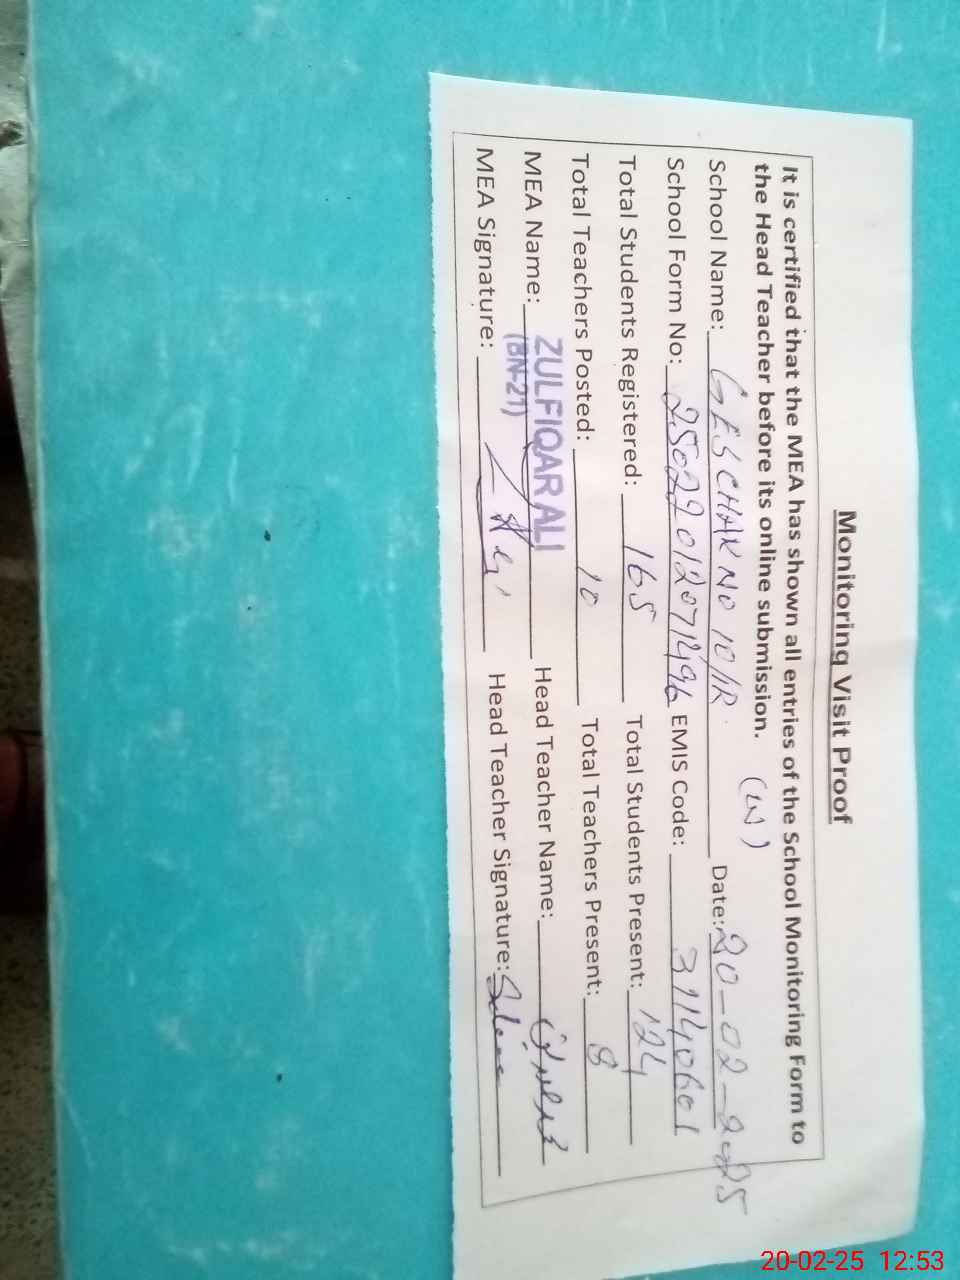 Monitoring Visit Proof
It is certified that the MEA has shown all entries of the School Monitoring Form to
the Head Teacher before its online submission. (W)
School Name: GES CHAK NO 10/1R Date: 20-02-2025
School Form No: 25022012071496 EMIS Code: 31140601
Total Students Registered: 165 Total Students Present: 124
Total Teachers Posted: 10 Total Teachers Present: 8
MEA Name: ZULFIQAR ALI Head Teacher Name:
(BN-21)
MEA Signature: Head Teacher Signature:
20-02-25 12:53